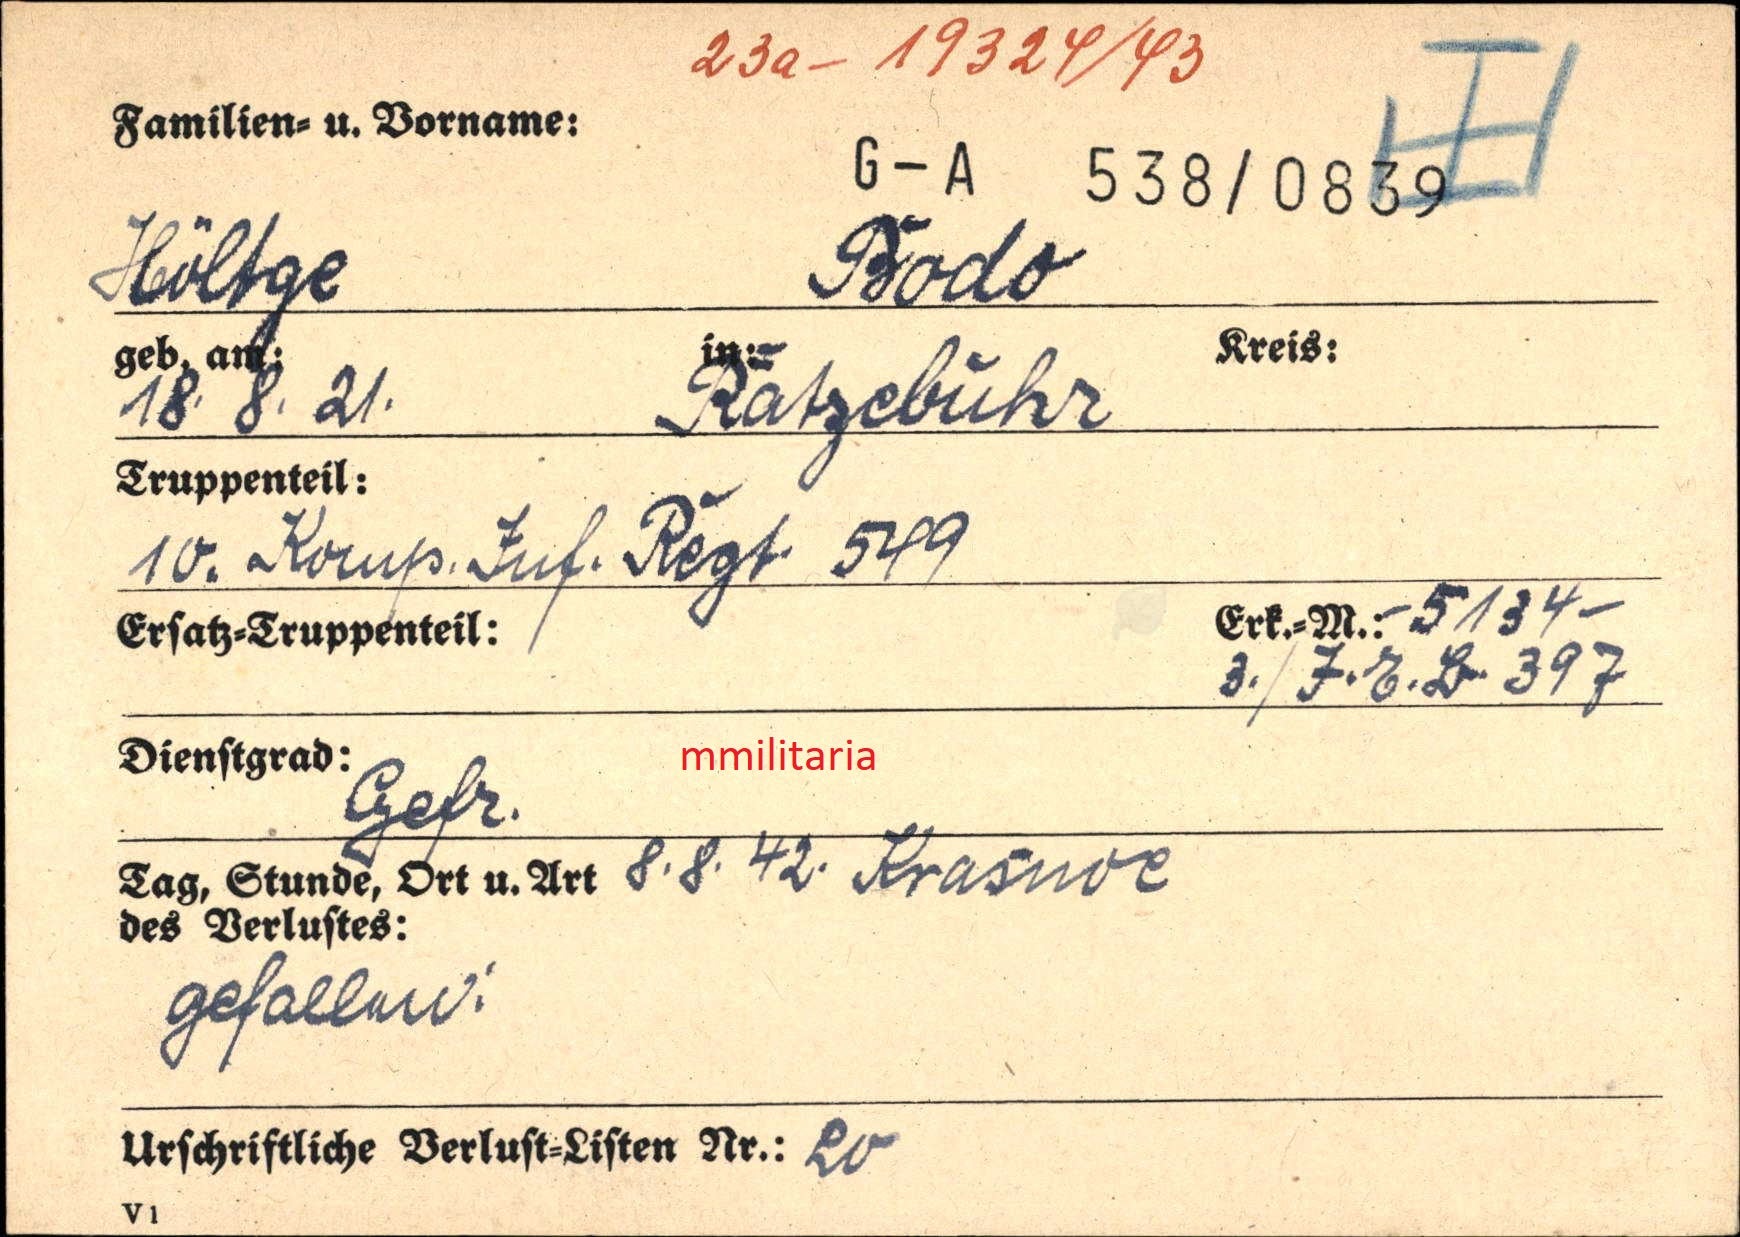 23a- 19324/43
Familien- u. Vorname:
G-A 538/0839
Höltge Bodo
geb. am: in: Kreis:
18. 8. 21. Ratzebuhr
Truppenteil:
10. Komp. Inf. Regt. 549
Ersatz-Truppenteil: Erk.-M.: -5134-
3./J.E.B. 397
Dienstgrad:
mmilitaria
Gefr.
Tag, Stunde, Ort u. Art 8. 8. 42. Krasnoe
des Verlustes:
gefallen.
Urschriftliche Verlust-Listen Nr.: 20
V 1